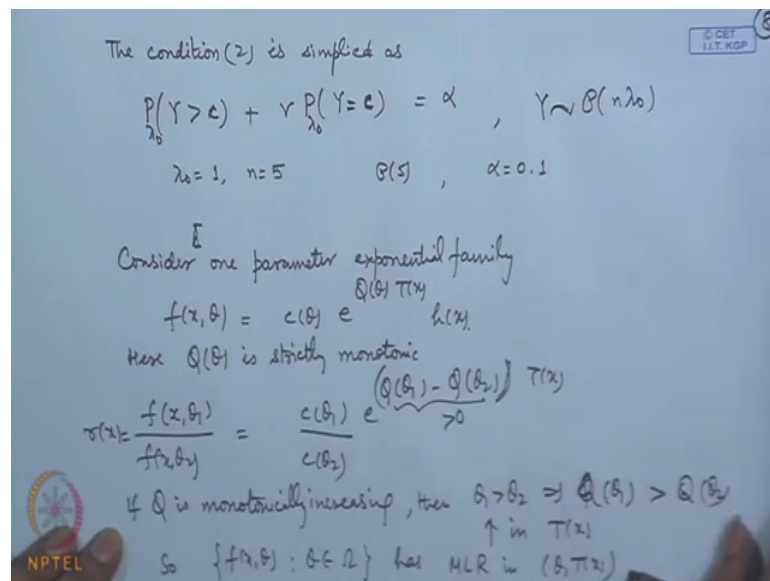 © CET
I.I.T. KGP
8
The condition (2) is simplied as
P_λ₀(Y > c) + r P_λ₀(Y = c) = α , Y ~ P(nλ₀)
λ₀ = 1, n = 5 P(5) , α = 0.1
Consider one parameter exponential family
f(x, θ) = c(θ) e^{Q(θ) T(x)} h(x).
Here Q(θ) is strictly monotonic
r(x) = f(x, θ₁) / f(x, θ₂) = c(θ₁) / c(θ₂) e^{(Q(θ₁) - Q(θ₂)) T(x)}
>0
If Q is monotonically increasing, then θ₁ > θ₂ ⇒ Q(θ₁) > Q(θ₂)
↑ in T(x)
So {f(x, θ) : θ ∈ Ω} has MLR in (θ, T(x))
NPTEL